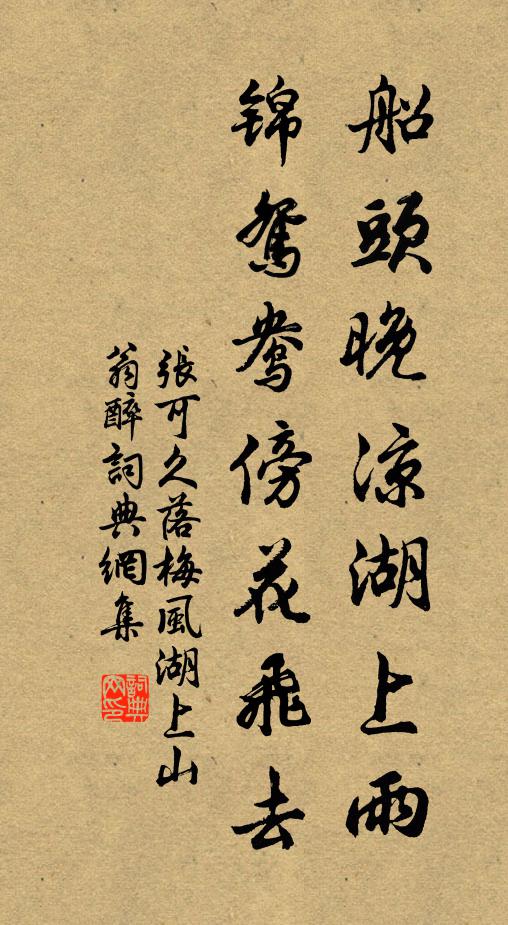 船頭晚涼湖上雨
锦鴛鴦傍花飛去
張可久落梅風湖上山
翁醉詞典網集
詞典网印